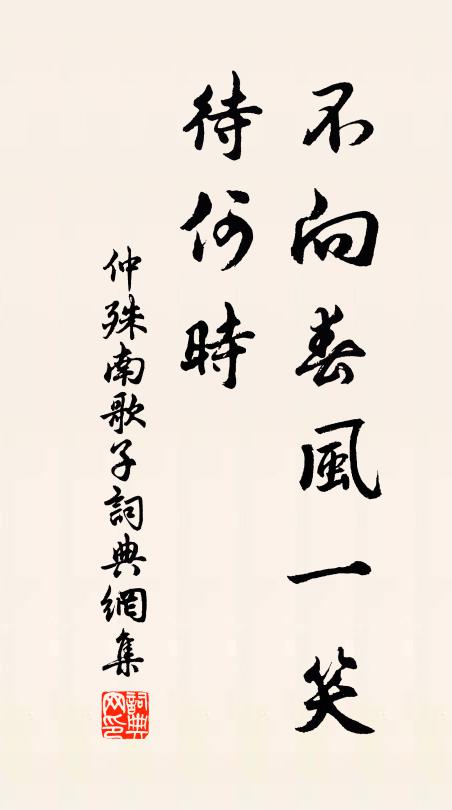 不向春風一笑
待何時
仲殊南歌子詞典網集
詞典网印